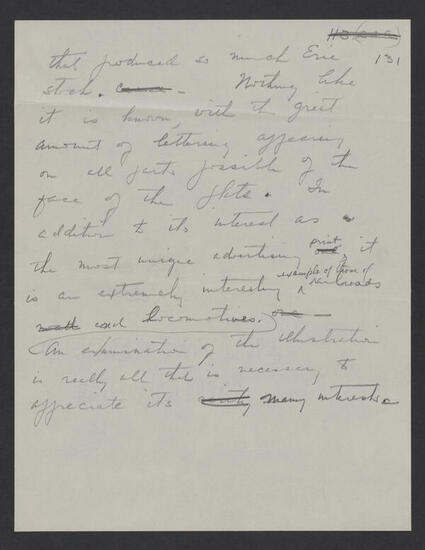 131
that produced so much Erie
stock. Nothing like
it is known, with the great
amount of lettering appearing
on all parts possible of the
face of the plate. In
addition to its interest as
the most unique advertising print, it
is an extremely interesting example of those of railroads
and locomotives.
An examination of the illustration
is really all that is necessary to
appreciate its many interests